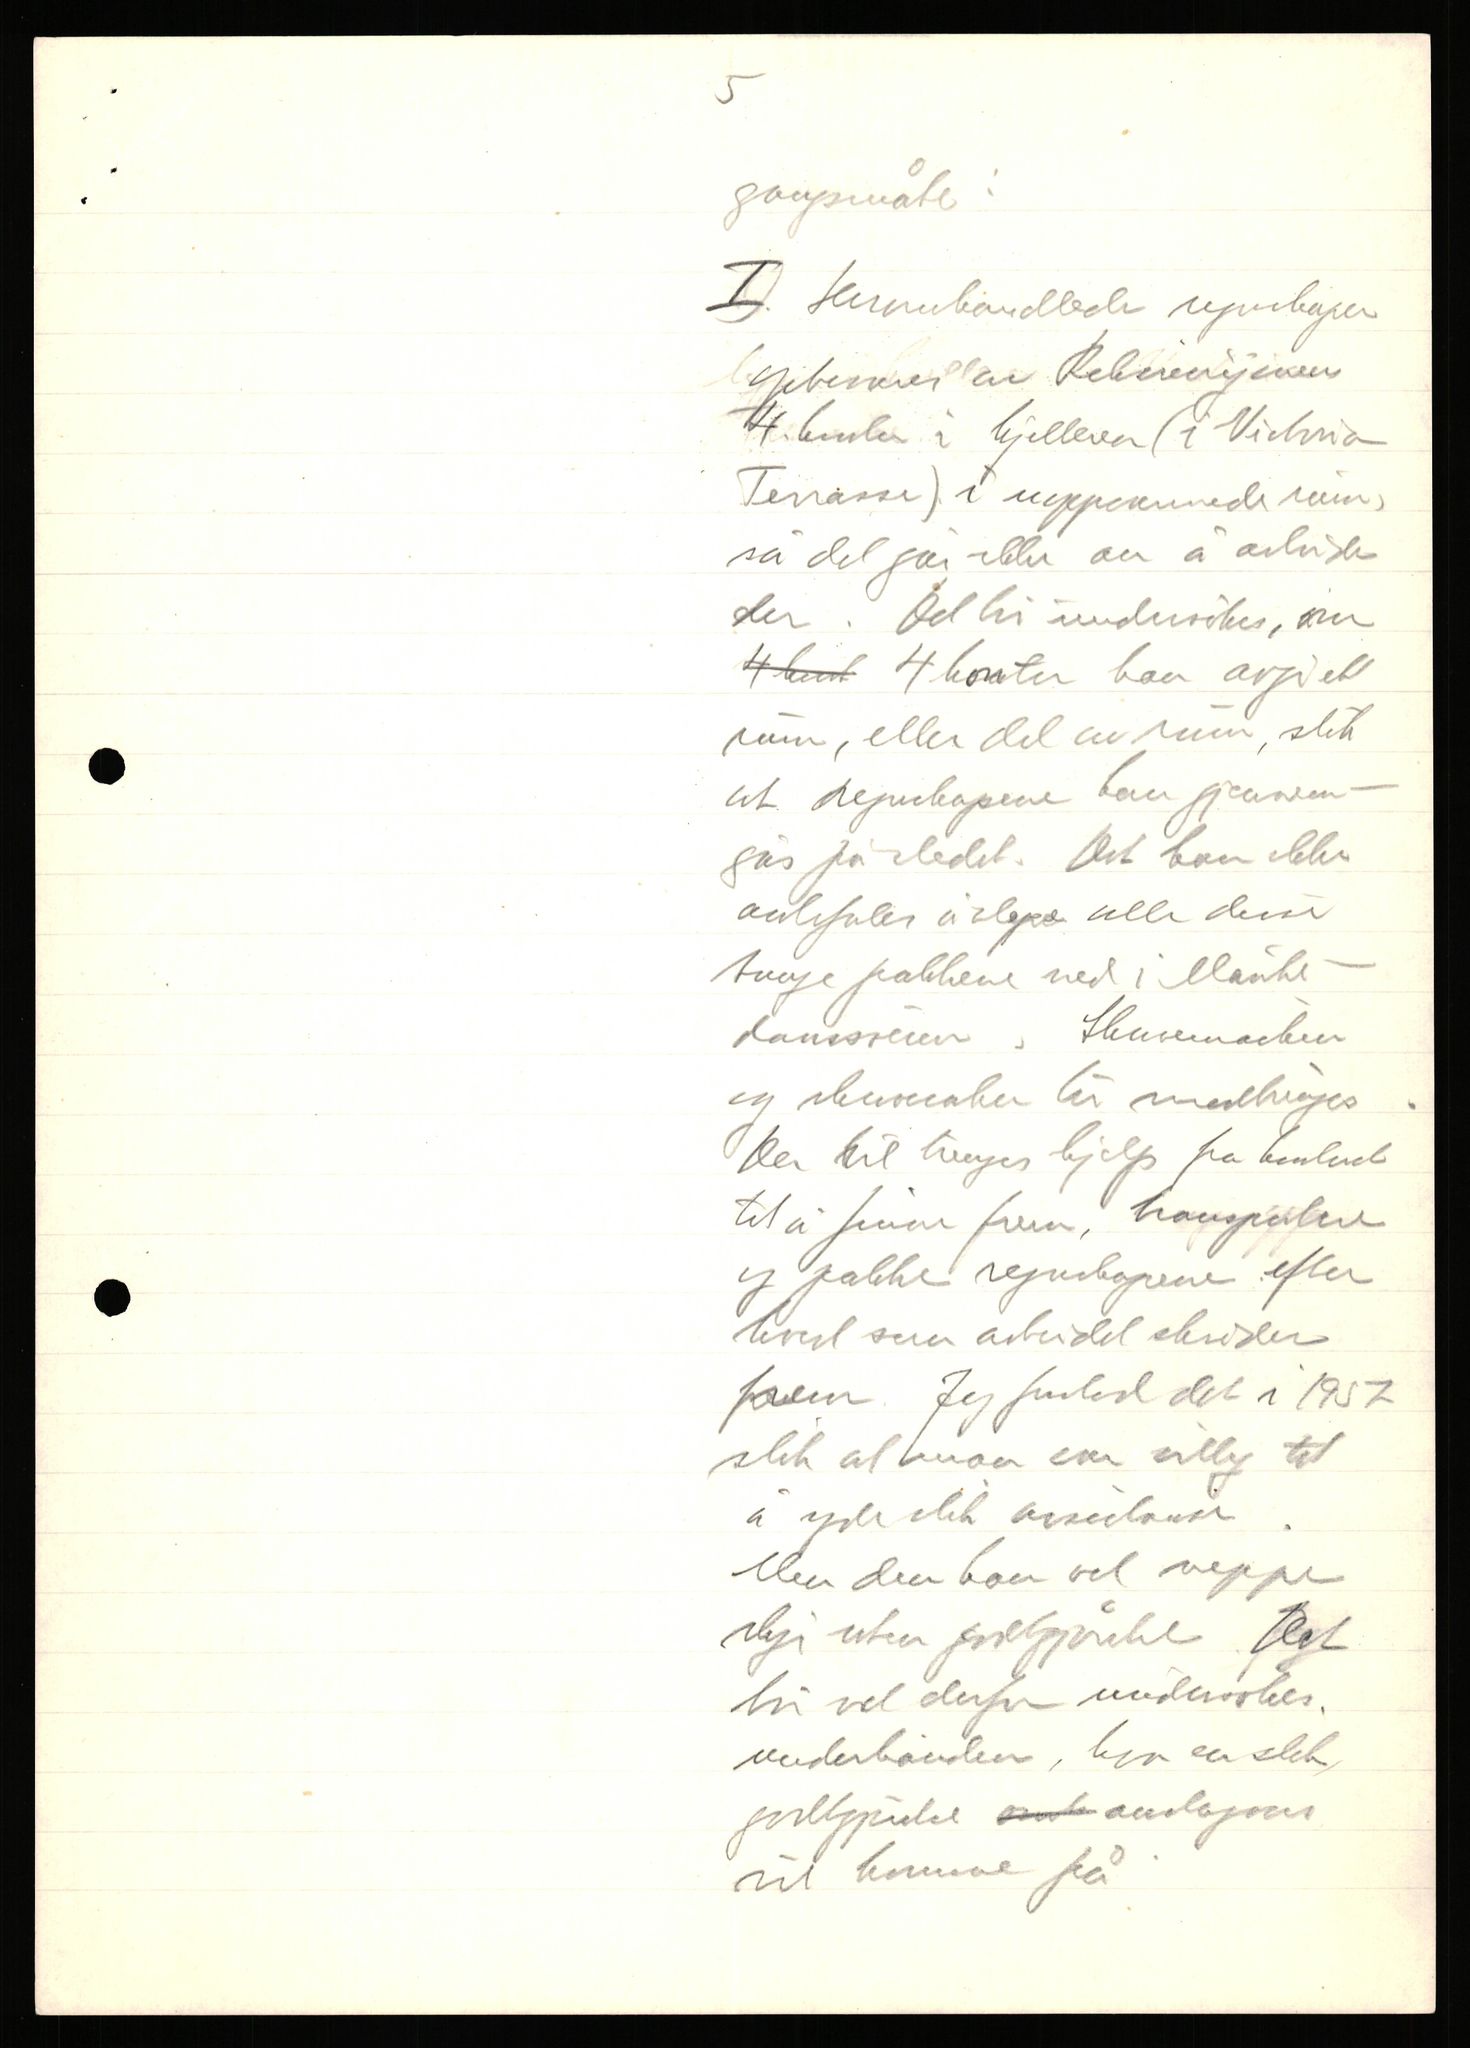 5
gangsmåte:
I). regnskaper
oppbevares av Revisjonens
4. kontor i kjelleren (i Victoria
Terrasse) i uoppvarmede rum,
så det går ikke an å arbeide
der. Det bør undersökes, om
4 kont 4 kontor kan avgi ett
rum, eller del av rum, slik
at regnskapene kan gjennem-
gås på stedet. Det kan ikke
anbefales å slepe alle disse
tunge pakkene ned i Munke-
damsveien. Skrivemaskin
og skrivesaker bör medbringes.
Der vil trenges hjelp fra kontoret
til å finne frem, transportere
og pakke regnskapene efter
hvert som arbeidet skrider
frem. Jeg forstod det i 1957
slik at man var villig til
å yde slik assistanse.
Men den kan vel neppe
skje uten godtgjörelse. Det
bör vel derfor undersökes
underhånden, hva en slik
godtgjörelse anslagsvis
vil komme på.